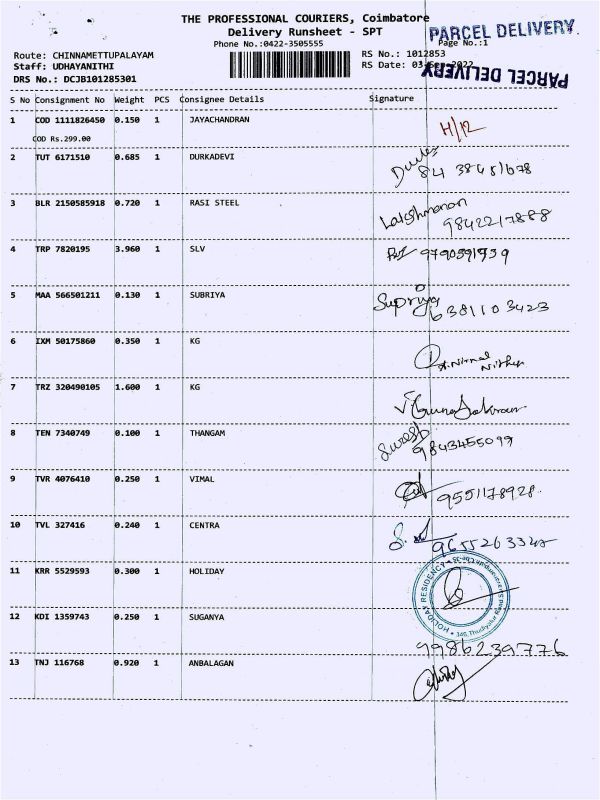 THE PROFESSIONAL COURIERS, Coimbatore
Delivery Runsheet - SPT
PARCEL DELIVERY.
Phone No.:0422-3505555
Page No.:1
Route: CHINNAMETTUPALAYAM
RS No.: 1012853
Staff: UDHAYANITHI
RS Date: 03-Sep-2022
PARCEL DELIVERY
DRS No.: DCJB101285301
S No Consignment No Weight PCS Consignee Details Signature
1 COD 1111826450 0.150 1 JAYACHANDRAN
COD Rs.299.00
H/12
2 TUT 6171510 0.685 1 DURKADEVI
3 BLR 2150585918 0.720 1 RASI STEEL
Lakshmanan
9842217888
4 TRP 7820195 3.960 1 SLV
5 MAA 566501211 0.130 1 SUBRIYA
Supriya
6381103423
6 IXM 50175860 0.350 1 KG
Nirmal
7 TRZ 320490105 1.600 1 KG
8 TEN 7340749 0.100 1 THANGAM
Suresh
9843455099
9 TVR 4076410 0.250 1 VIMAL
9551178928.
10 TVL 327416 0.240 1 CENTRA
11 KRR 5529593 0.300 1 HOLIDAY
HOLIDAY RESIDENCY
12 KDI 1359743 0.250 1 SUGANYA
9986239776
13 TNJ 116768 0.920 1 ANBALAGAN